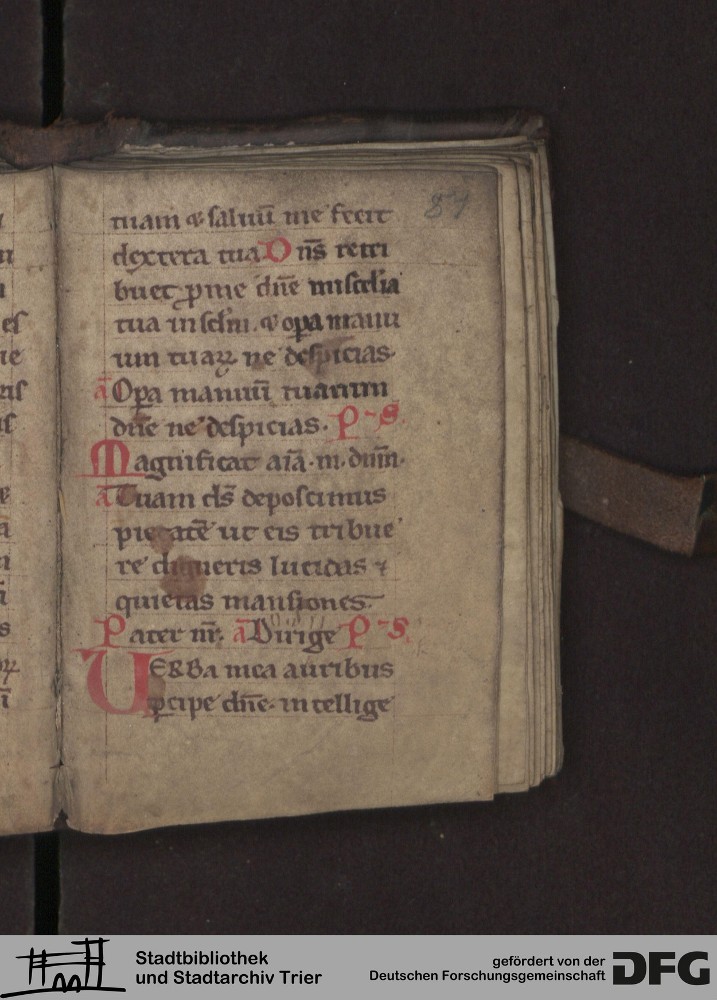 87
tuam & saluū me fecit
dextera tua Dn̄s retri
buet ꝓ me dn̄e misc̄dia
tua in sc̄lm . & oꝑa manu
um tuaꝝ ne despicias.
a᷒ Oꝑa manuū tuarum
dn̄e ne despicias. P S
Magnificat aīa . m . dn̄m .
a Tuam ds̄ deposcimus
pietatē ut eis tribue
re digneris lucidas &
quietas mansiones.
Pater nr̄. a Dirige P S
UERBa mea auribus
ꝑcipe dn̄e . intellige
Stadtbibliothek
und Stadtarchiv Trier
gefördert von der
Deutschen Forschungsgemeinschaft
DFG